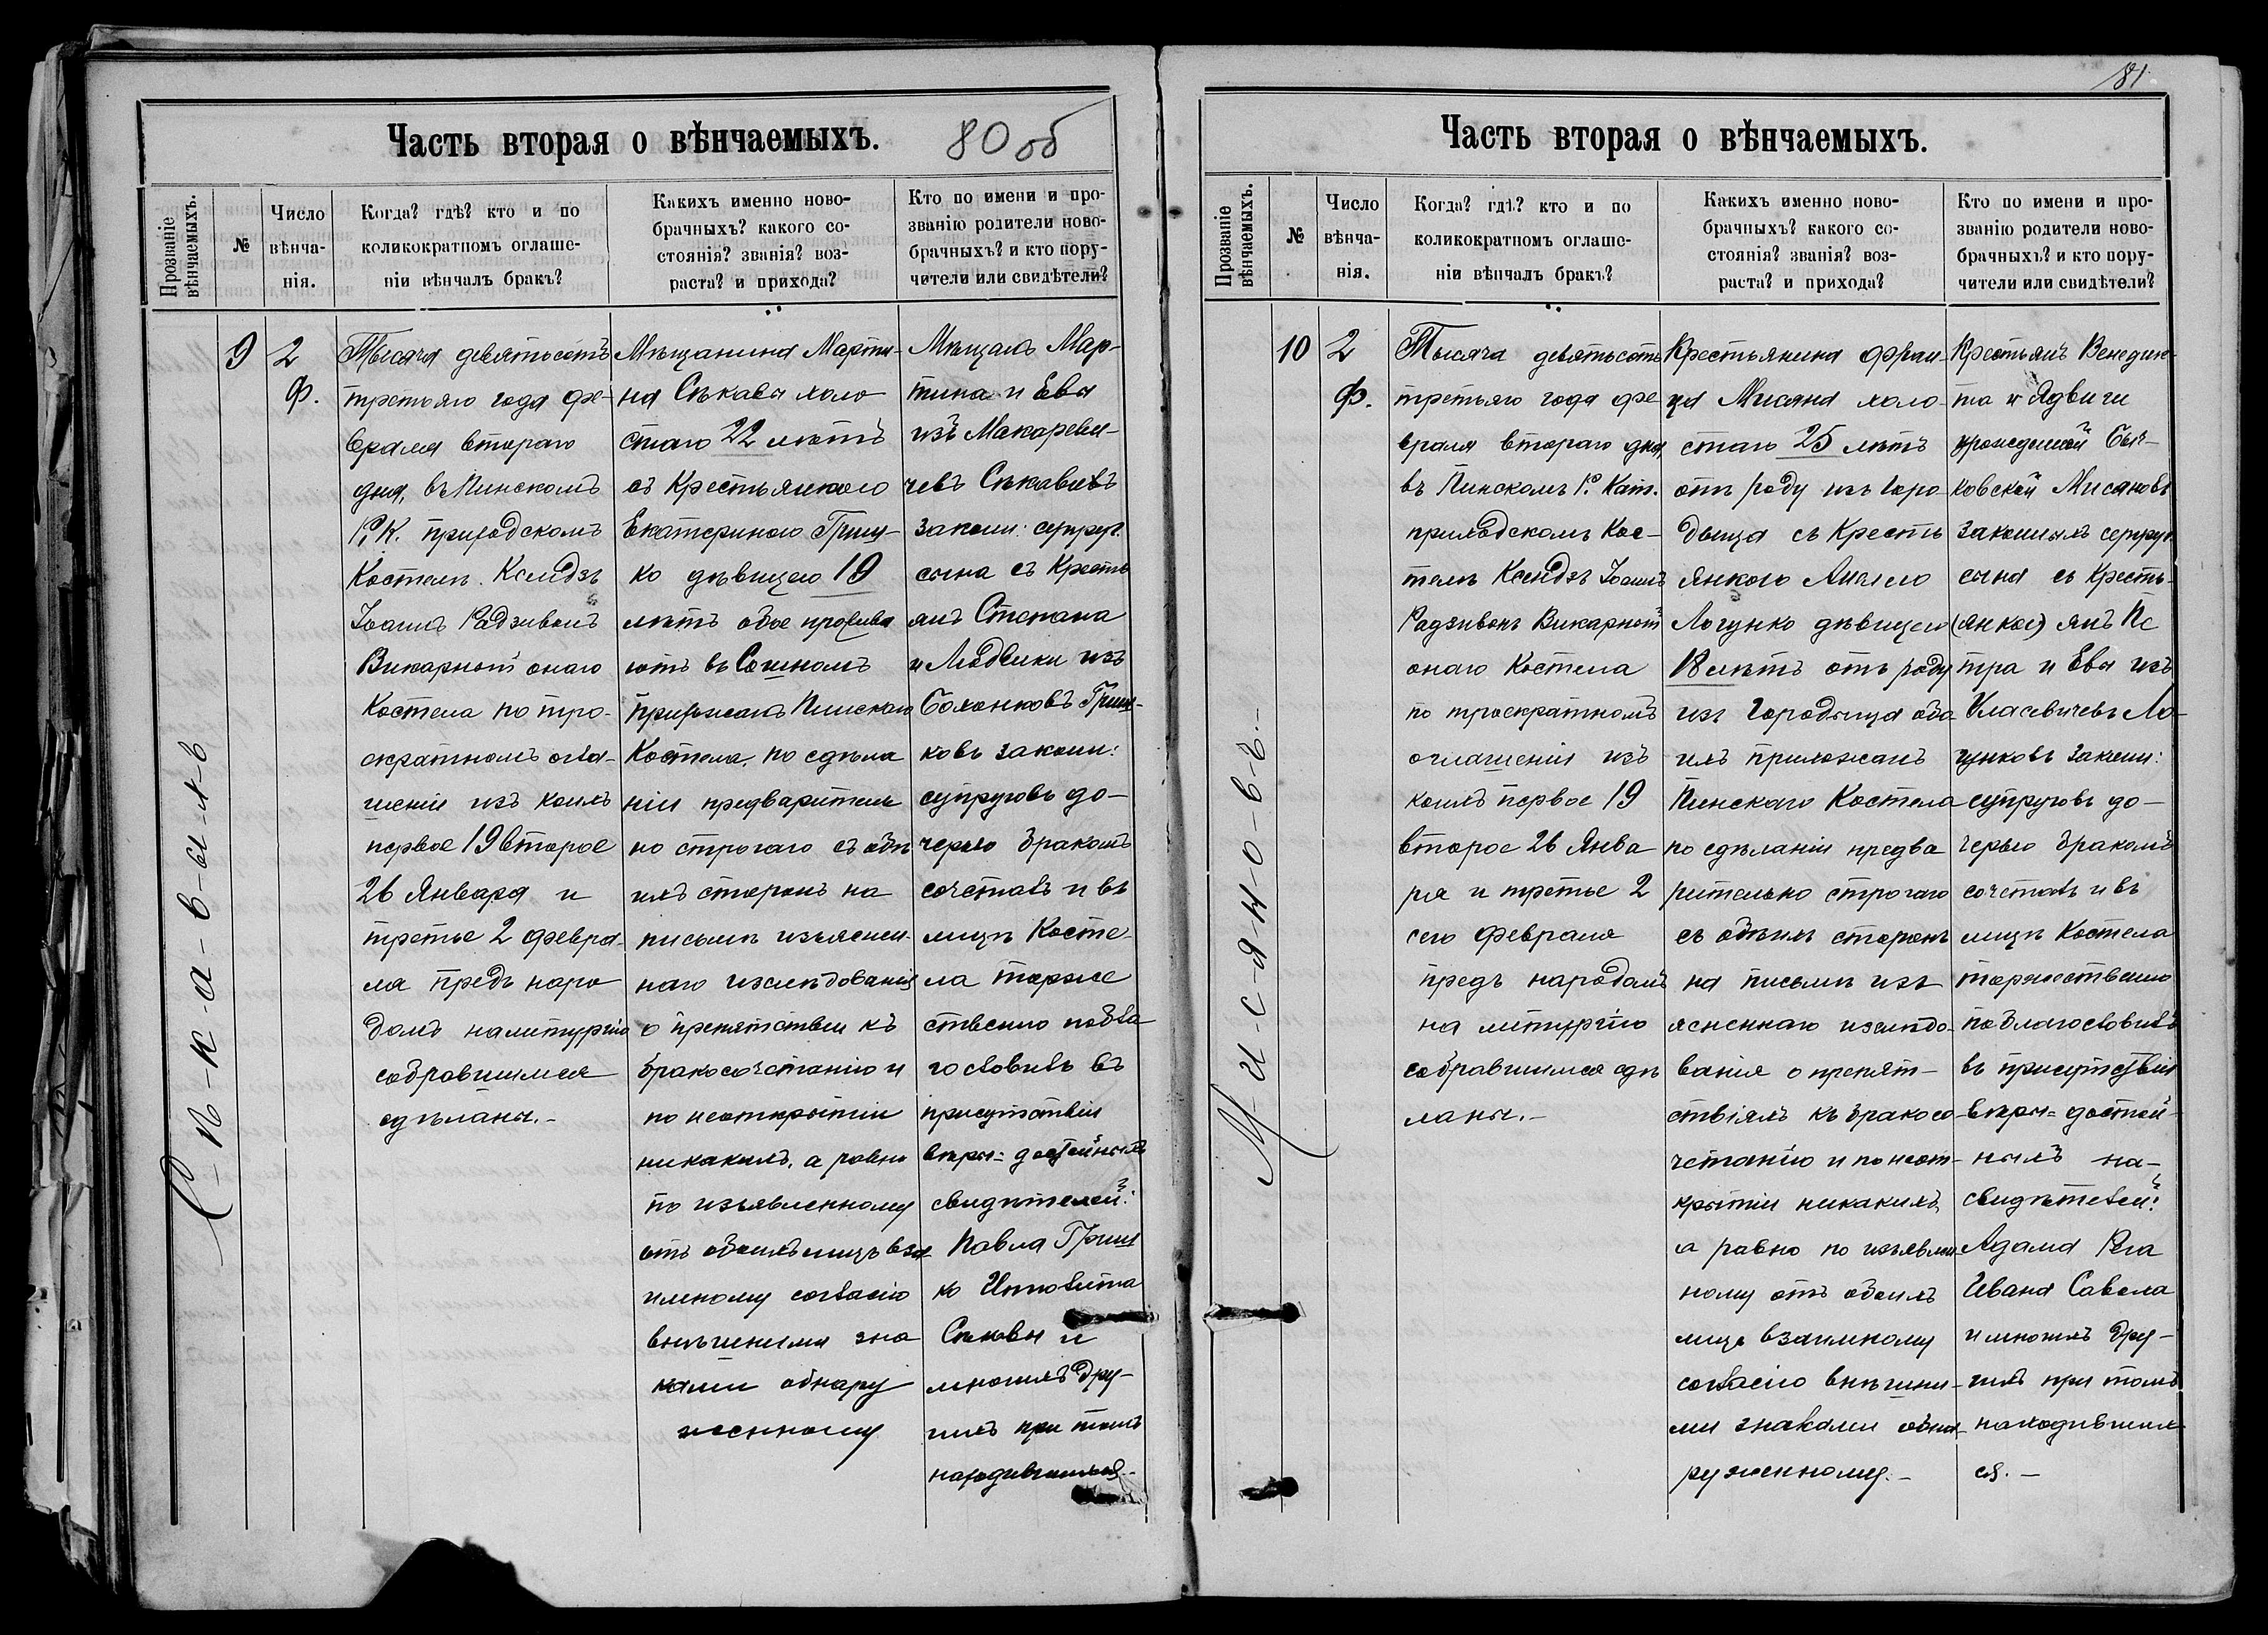 80 об
Часть вторая о вѣнчаемыхъ.
Прозваніе вѣнчаемыхъ.
№
Число вѣнча-
нія.
Когда? гдѣ? кто и по
коликократномъ оглаше-
ніи вѣнчалъ бракъ?
Какихъ именно ново-
брачныхъ? какого со-
стоянія? званія? воз-
раста? и прихода?
Кто по имени и про-
званію родители ново-
брачныхъ? и кто пору-
чители или свидѣтели?
С-ѣ-к-а-в-ы-х-ъ
9
2
Ф.
Тысяча девятьсотъ
третьяго года фе-
враля втораго
дня, въ Пинскомъ
Р. К. приходскомъ
Костелѣ Ксендзъ
Іоаннъ Радзивонъ
Викарный онаго
Костела по тро-
скратномъ огла-
шеніи изъ коихъ
первое 19 второе
26 Января и
третье 2 февра-
ля предъ наро
домъ на литургію
собравшимся
сдѣланы.-
Мѣщанина Марти-
на Сѣкавы холо
стаго 22 лѣтъ
съ Крестьянкою
Екатериною Гриш-
ко дѣвицею 19
лѣтъ обое прожива
ютъ въ Сошномъ
Прихожанъ Пинскаго
Костела, по сдѣла
ніи предваритель
но строгаго съ обѣ
ихъ сторонъ на
письмѣ изъяснен-
наго изслѣдованія
о препятствіи къ
бракосочетанію и
по неоткрытіи
никакихъ, а равно
по изъявленному
отъ обоихъ лицъ вза-
имному согласію
внѣшними зна
ками обнару
женному
Мѣщанъ Мар-
тина и Евы
изъ Макареви-
чевъ Сѣкавовъ
законн: супруг.
сына съ Кресть
янъ Степана
и Людвики изъ
Болонковъ Гриш-
ковъ законн:
супруговъ до-
черью бракомъ
сочеталъ и въ
лицѣ Косте-
ла торже
ственно побла
гословилъ въ
присутствіи
вѣры= достойныхъ
свидѣтелей:
Павла Гриш
ко Ипполита
Сѣкавы и
многихъ дру-
гихъ при томъ
находившихся.-
81.
Часть вторая о вѣнчаемыхъ.
Прозваніе вѣнчаемыхъ.
№
Число вѣнча-
нія.
Когда? гдѣ? кто и по
коликократномъ оглаше-
ніи вѣнчалъ бракъ?
Какихъ именно ново-
брачныхъ? какого со-
стоянія? званія? воз-
раста? и прихода?
Кто по имени и про-
званію родители ново-
брачныхъ? и кто пору-
чители или свидѣтели?
М-и-с-я-н-о-в-ъ.-
10
2
Ф.
Тысяча девятьсотъ
третьяго года фе
враля втораго дня,
въ Пинскомъ Р. Кат.
приходскомъ Кос-
телѣ Ксендзъ Іоаннъ
Радзивонъ Викарный
онаго Костела
по троскратномъ
оглашеніи изъ
коихъ первое 19
второе 26 Янва
ря и третье 2
сего Февраля
предъ народомъ
на литургію
собравшимся сдѣ
ланы.-
Крестьянина Фран-
ца Мисяна холо-
стаго 25 лѣтъ
отъ роду изъ Горо-
дыща съ Кресть
янкою Анелею
Логунко дѣвицею
18 лѣтъ отъ роду
изъ Городыща обо
ихъ прихожанъ
Пинскаго Костела
по сдѣланіи предва
рительно строгаго
съ обѣихъ сторонъ
на письмѣ изъ
ясненнаго изслѣдо-
ванія о препят-
ствіяхъ къ бракосо-
четанію и по неот-
крытіи никакихъ,
а равно по изъявлен-
ному отъ обоихъ
лицъ взаимному
согласію внѣшни-
ми знаками обна-
руженному.-
Крестьянъ Венедик-
та и Ядвиги
урожденной Быч-
ковской Мисяновъ
законныхъ супруг.
сына съ Кресть-
(янкою) янъ Пе
тра и Евы изъ
Уласевичевъ Ло-
гунковъ законн:
супруговъ до-
черью бракомъ
сочеталъ и въ
лицѣ Костела
торжественно
поблагословилъ
въ присутствіи
вѣры= достой-
ныхъ на-
свидѣтелей:
Адама
Ивана Савела
и многихъ дру-
гихъ при томъ
находившихъ
ся.-